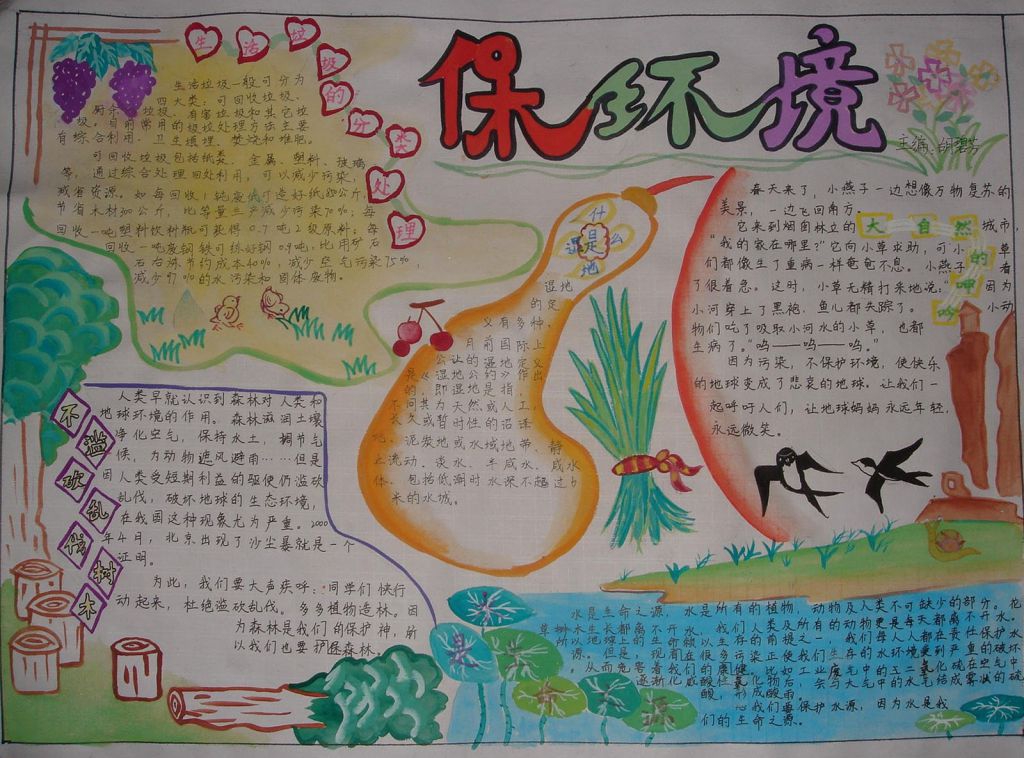 保环境
主编:胡碧芳
生活垃圾的分类处理
生活垃圾一般可分为
四大类:可回收垃圾、
厨余垃圾、有害垃圾和其它垃
圾。目前常用的垃圾处理方法主要
有综合利用、卫生填埋、焚烧和堆肥。
可回收垃圾包括纸类、金属、塑料、玻璃
等,通过综合处理回处利用,可以减少污染,
节省资源。如每回收1吨废纸可造好纸850公斤,
节省木材300公斤,比等量生产减少污染70%;每
回收一吨塑料饮料瓶可获得0.7吨2级原料;每
回收一吨废钢铁可炼好钢0.9吨,比用矿石
石冶炼节约成本40%,减少空气污染75%,
减少97%的水污染和固体废物。
什么是湿地
湿地
的定
义有多种,
月前国际上
公让的湿地定义
是《湿地公约》作出
的,即湿地是指,
不问其为天然或人工,
长久或暂时性的沼泽
地、泥炭地或水域地带、静
止流动、淡水、半咸水、咸水
体、包括低潮时水深不超过6
米的水域。
大自然的呻吟
春天来了,小燕子一边想像万物复苏的
美景,一边飞回南方。
它来到烟囱林立的城市,
“我的家在哪里?”它向小草求助,可小草
们都像生了重病一样奄奄不息。小燕子看
了很着急。这时,小草无精打采地说:“因为
小河穿上了黑袍,鱼儿都失踪了。小动
物们吃了吸取小河水的小草,也都
生病了。”呜——呜——呜。”
因为污染,不保护环境,使快乐
的地球变成了悲哀的地球。让我们一
起呼吁人们,让地球妈妈永远年轻,
永远微笑。
不滥砍乱伐树木
人类早就认识到森林对人类和
地球环境的作用。森林滋润土壤
净化空气,保持水土,调节气
候,为动物遮风避雨……但是
因人类受短期利益的驱使仍滥砍
乱伐,破坏地球的生态环境,
在我国这种现象尤为严重。2000
年4月,北京出现了沙尘暴就是一个
证明。
为此,我们要大声疾呼:同学们快行
动起来,杜绝滥砍乱伐。多多植物造林。因
为森林是我们的保护神,所
以我们也要护保森林。
是
源
水是生命之源,水是所有的植物,动物及人类不可缺少的部分。花
草树木生长都离不开水,我们人类及所有的动物更是每天都离不开水。
所以地球上的生命赖以生存的前提之一,我们每人人都在责任保护水
源。但是,现有在很多污染正使我们生存的水环境受到严重的破坏
,从而危害着我们的康健。比如工业废气中的五二氧化硫在空气中
逐渐化成酸性氧化物后,会与大气中的水气结成雾状的硫
酸,形成酸雨
我们要保护水源,因为水是我
们的生命之源。